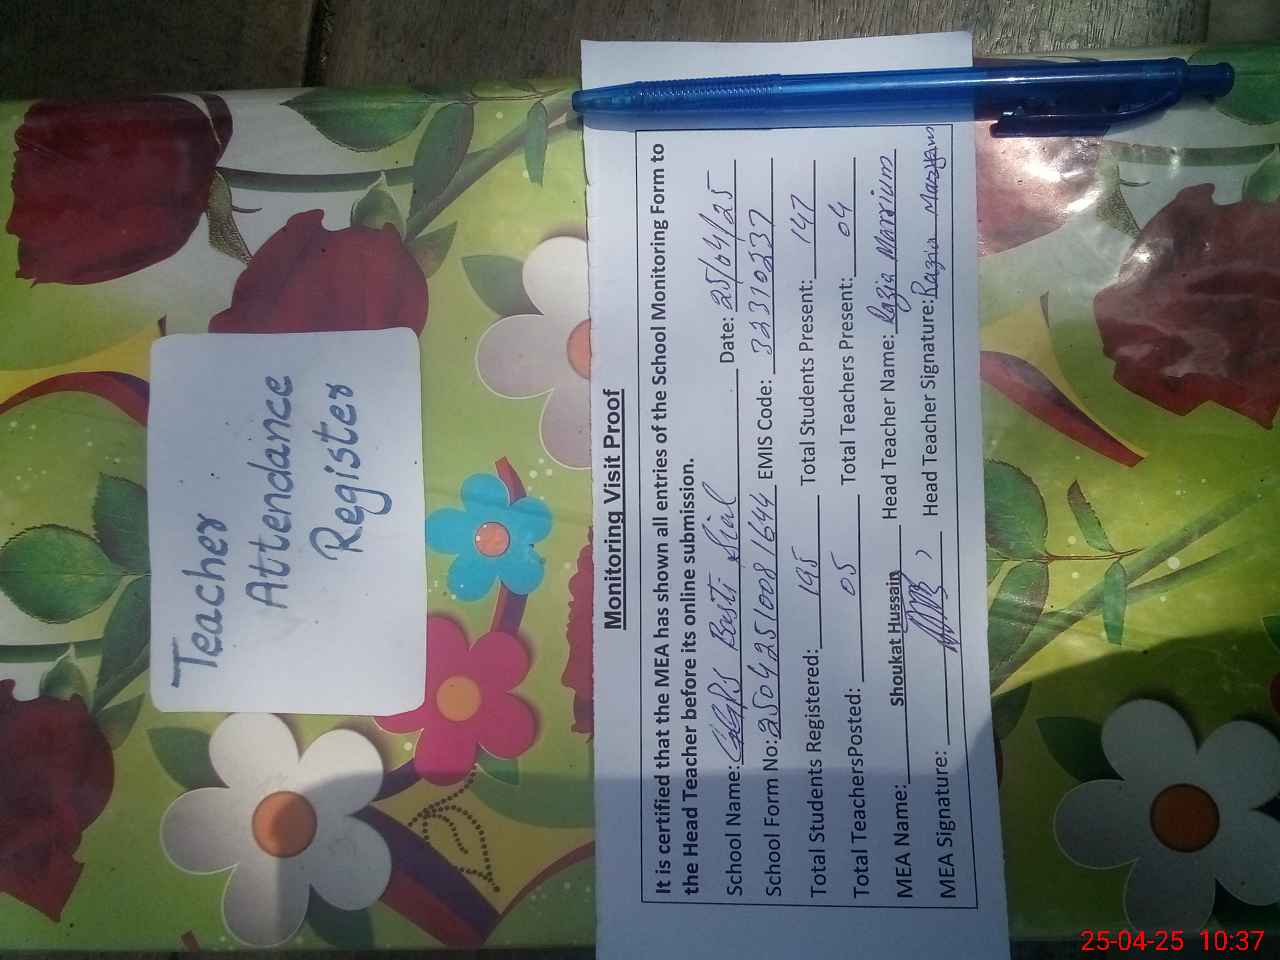 Teacher
Attendance
Register
Monitoring Visit Proof
It is certified that the MEA has shown all entries of the School Monitoring Form to
the Head Teacher before its online submission.
School Name: GGPS Basti Sial Date: 25/04/25
School Form No: 25042510081644 EMIS Code: 32310237
Total Students Registered: 195 Total Students Present: 147
Total TeachersPosted: 05 Total Teachers Present: 04
MEA Name: Shoukat Hussain Head Teacher Name: Razia Marrium
MEA Signature: Head Teacher Signature: Razia Maryam
25-04-25 10:37